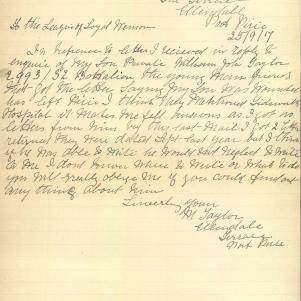 The Terrace
Allendale
Port Pirie
25/9/17
To the League of Loyal Women
In Reference to letter I recieved in reply to
enquire of My Son Private William John Taylor
2993/32 Battalion, the young Man friends
that got the letter saying My Son was Wounded
has left Pirie I think they Mentioned Sidcumb
Hospital it Makes Me fell anxous as I got no
letters from him by this last Mail I got 2
returned they were dated Sept last year But I think
if he was able to write he would not Neglect to write
to Me I dont know where to write or what to do
you will greatly oblige Me if you could find out
any thing about him
Sincerely yours
M Taylor
Allendale
Terrace
Port Pirie